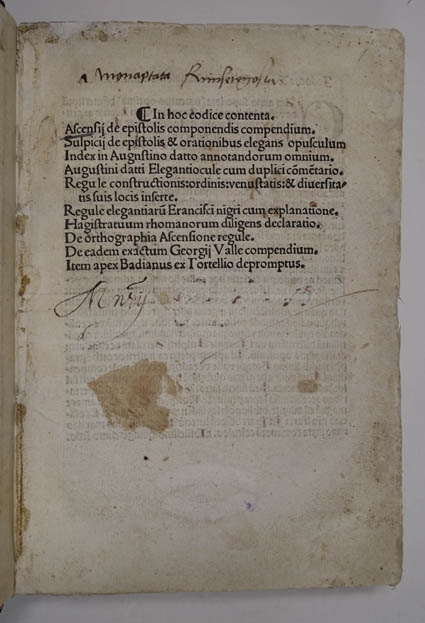 ¶ In hoc codice contenta.
Ascensij de epistolis componendis compendium.
Sulpicij de epistolis & orationibus elegans opusculum
Index in Augustino datto annotandorum omnium.
Augustini datti Elegantiocule cum duplici cōmētario.
Regule constructionis:ordinis:venustatis:& diversita-
tis suis locis inserte.
Regule elegantiarū Francisci nigri cum explanatione.
Magistratuum rhomanorum diligens declaratio.
De orthographia Ascensione regule.
De eadem exactum Georgij Valle compendium.
Item apex Badianus ex Tortellio depromptus.